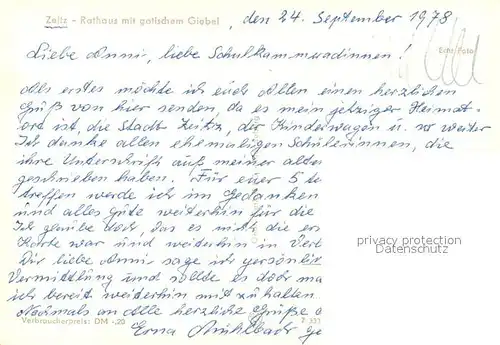 Zeitz - Rathaus mit gotischem Giebel, den 24. September 1978
Echt Foto
Liebe Anni, liebe Schulkammeradinnen!
Als erstes möchte ich euch Allen einen herzlichen
Gruß von hier senden, da es mein jetziger Heimat-
ort ist, die Stadt Zeitz, der Kinderwagen u. so weiter
Ich danke allen ehemaligen Schülerinnen, die
ihre Unterschrift auf meiner alten
geschrieben haben. Für euer 5 te
treffen werde ich im Gedanken
und alles Gute weiterhin für die
Ich glaube doch, das es nicht die er
Karte war und weiterhin in Verb
Dir liebe Anni sage ich persönlich
Vermittlung und sollte es doch ma
ich bereit weiterhin mit zu halten
Nochmals an Alle herzliche Grüße
Erna Mühlbach ge
Verbraucherpreis: DM -,20
privacy protection
Datenschutz